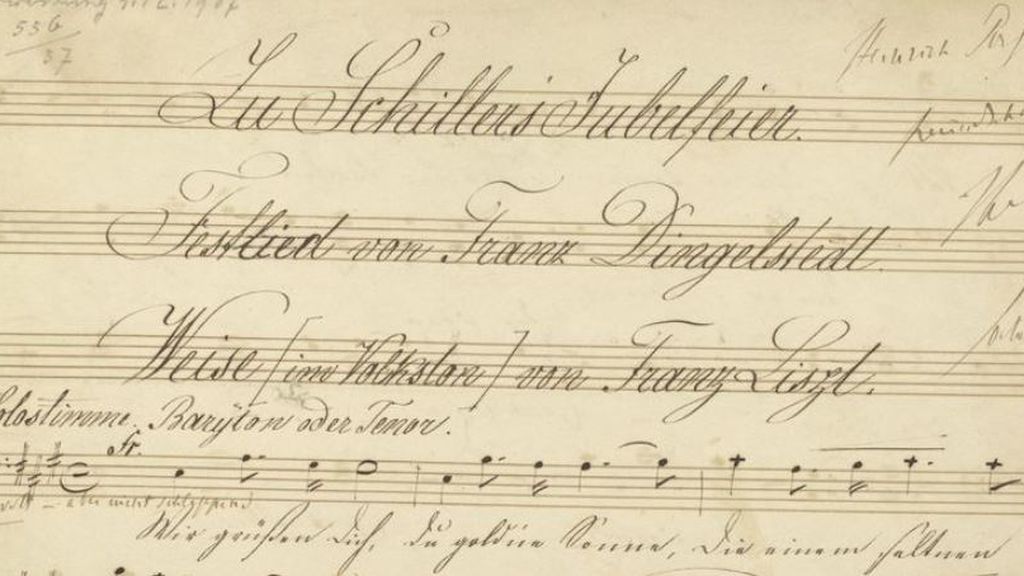 556
37
Heinrich
Zu Schillers Jubelfeier.
Festlied von Franz Dingelstedt.
Weise [im Volkston] von Franz Liszt.
Solostimme. Baryton oder Tenor.
aber nicht schleppend
Wir grüßen dich, du goldne Sonne, Die einem seltnen